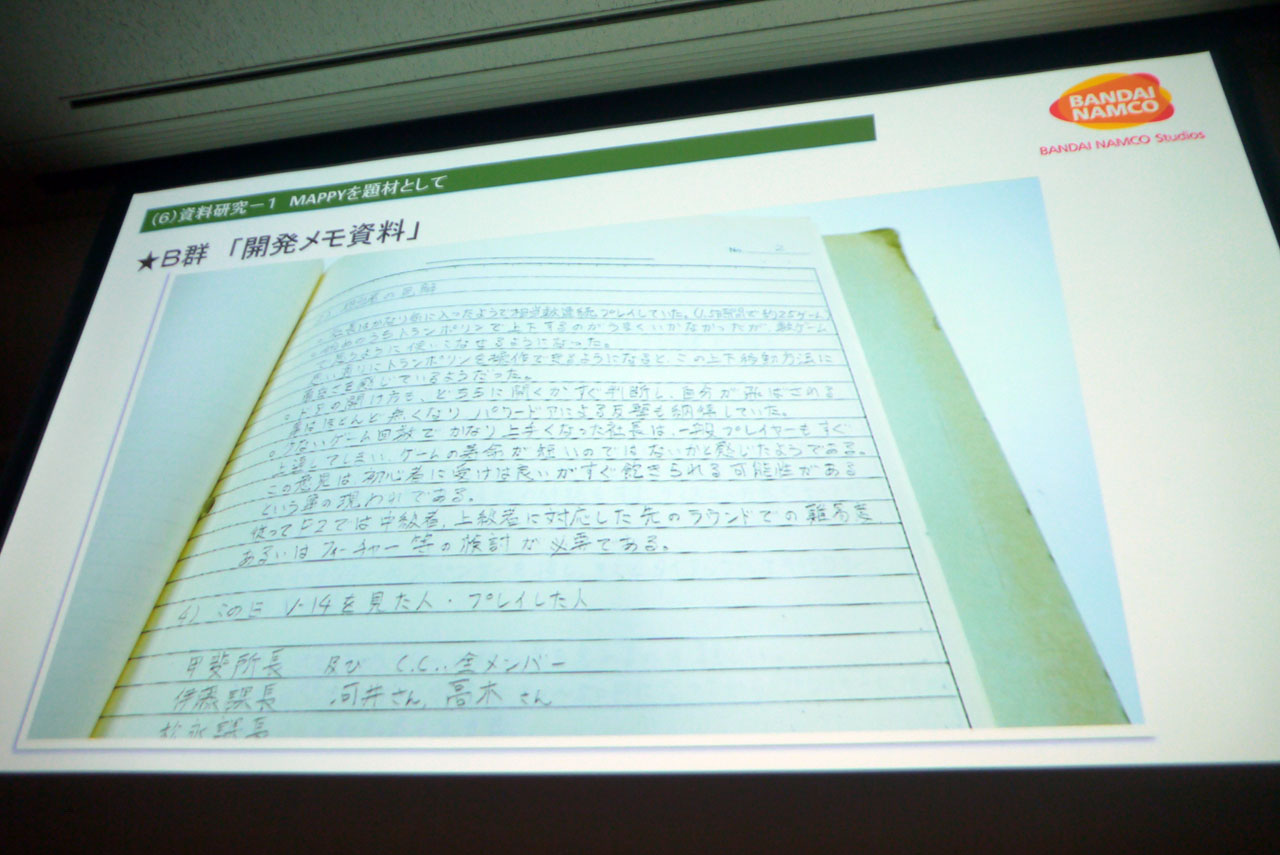 BANDAI
NAMCO
BANDAI NAMCO Studios
(6)資料研究－1 MAPPYを題材として
★B群 「開発メモ資料」
No. 2
社長の見解
社長はかなり気に入ったようで相当数連続プレイしていた。(1.5時間で約25ゲーム)
初めのうちトランポリンで上下するのがうまくいかなかったが、数ゲーム
で思うように使いこなせるようになった。
思い通りにトランポリンを操作できるようになると、この上下移動方法に
を感じているようだった。
ドアの開け方も、どちらに開くかすぐ判断し、自分が飛ばされる
事はほとんど無くなり、パワードアによる反撃も納得していた。
少ないゲーム回数で かなり上手くなった社長は、一般プレイヤーもすぐ
上達してしまい、ゲームの寿命が短いのではないかと感じたようである。
この意見は、初心者に受けは良いがすぐ飽きられる可能性がある
という事の現われである。
従ってE2では中級者、上級者に対応した先のラウンドでの難易度
あるいはフィーチャー等の検討が必要である。
4) この日 V-14を見た人・プレイした人
甲斐所長 及び C.C.. 全メンバー
伊藤課長 河井さん, 高木さん
松永課長